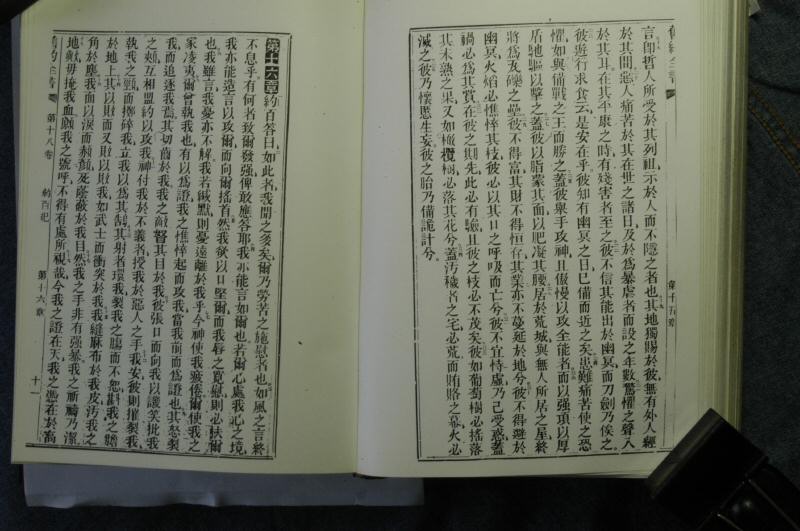 舊約全書
第十五章
言卽哲人所受於其列祖示於人而不隱之者也其地獨賜於彼無有外人經
於其間惡人痛苦於其在世之諸日及於爲暴虐者而設之年數驚懼之聲入
於其耳在其平康之時有殘害者至之彼不信其能出於幽冥而刀劍乃俟之
彼遊行求食云是安在乎彼知有幽冥之日已備而近之矣患難痛苦使之恐
懼如與備戰之王而勝之蓋彼舉手攻神且傲慢以攻全能者而以强項以厚
盾馳驅以擊之蓋彼以脂蒙其面以肥凝其腰居於荒城與無人所居之屋終
將爲瓦礫之壘彼不得富其財不得恒存其業亦不蔓延於地兮彼不得避於
幽冥火焰必憔悴其枝彼必以其口之呼吸而亡兮彼不宜恃虛乃己受惑蓋
禍必爲其賞在彼之期先此必有驗且彼之枝必不茂矣彼如葡萄樹必搖落
其未熟之果又如橄欖樹必落其花兮蓋汚穢者之宅必荒而賄賂之幕火必
滅之彼乃懷慝生妄彼之胎乃備詭計兮
第十六章約百答曰如此者我聞之多矣爾乃勞苦之施慰者也如風之言終
不息乎有何者致爾發强俾敢應答耶我亦能言如爾也若爾心處我心之境
我亦能造言以攻爾而向爾搖首然我欲以口堅爾而我脣之寬慰則必扶爾
也我雖言我憂亦不解我若緘默則憂遠離於我乎今神使我疲倦爾使我之
家凌夷爾曾執我也有以爲證我之憔悴起而攻我當我前而爲證也其怒裂
我而追逐我焉其切齒於我我之敵瞀其目於我彼張口而向我以譏笑批我
之頰互相盟約以攻我神付我於不義者投我於惡人之手我安彼則摧裂我
執我之頸而擲碎我立我以爲其鵠其射者環我裂我之腸而不恕覿我之膽
於地上其以財而又財以財我如武士而衝突於我我縫麻布於我皮汚我之
角於塵我面以淚而赭顏死蔭蔽於我目然我之手非有强暴我之祈禱乃潔
地歟毋掩我血歟我之號呼不得有處所視哉今我之證在天我之憑在於高
舊約全書
第十八卷
約百紀
第十六章
十一